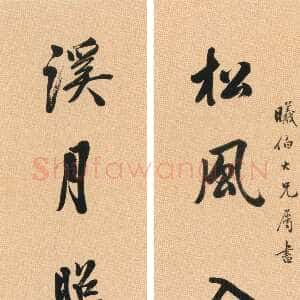 曦伯大兄属书
松風入
溪月照
ShufawangCN